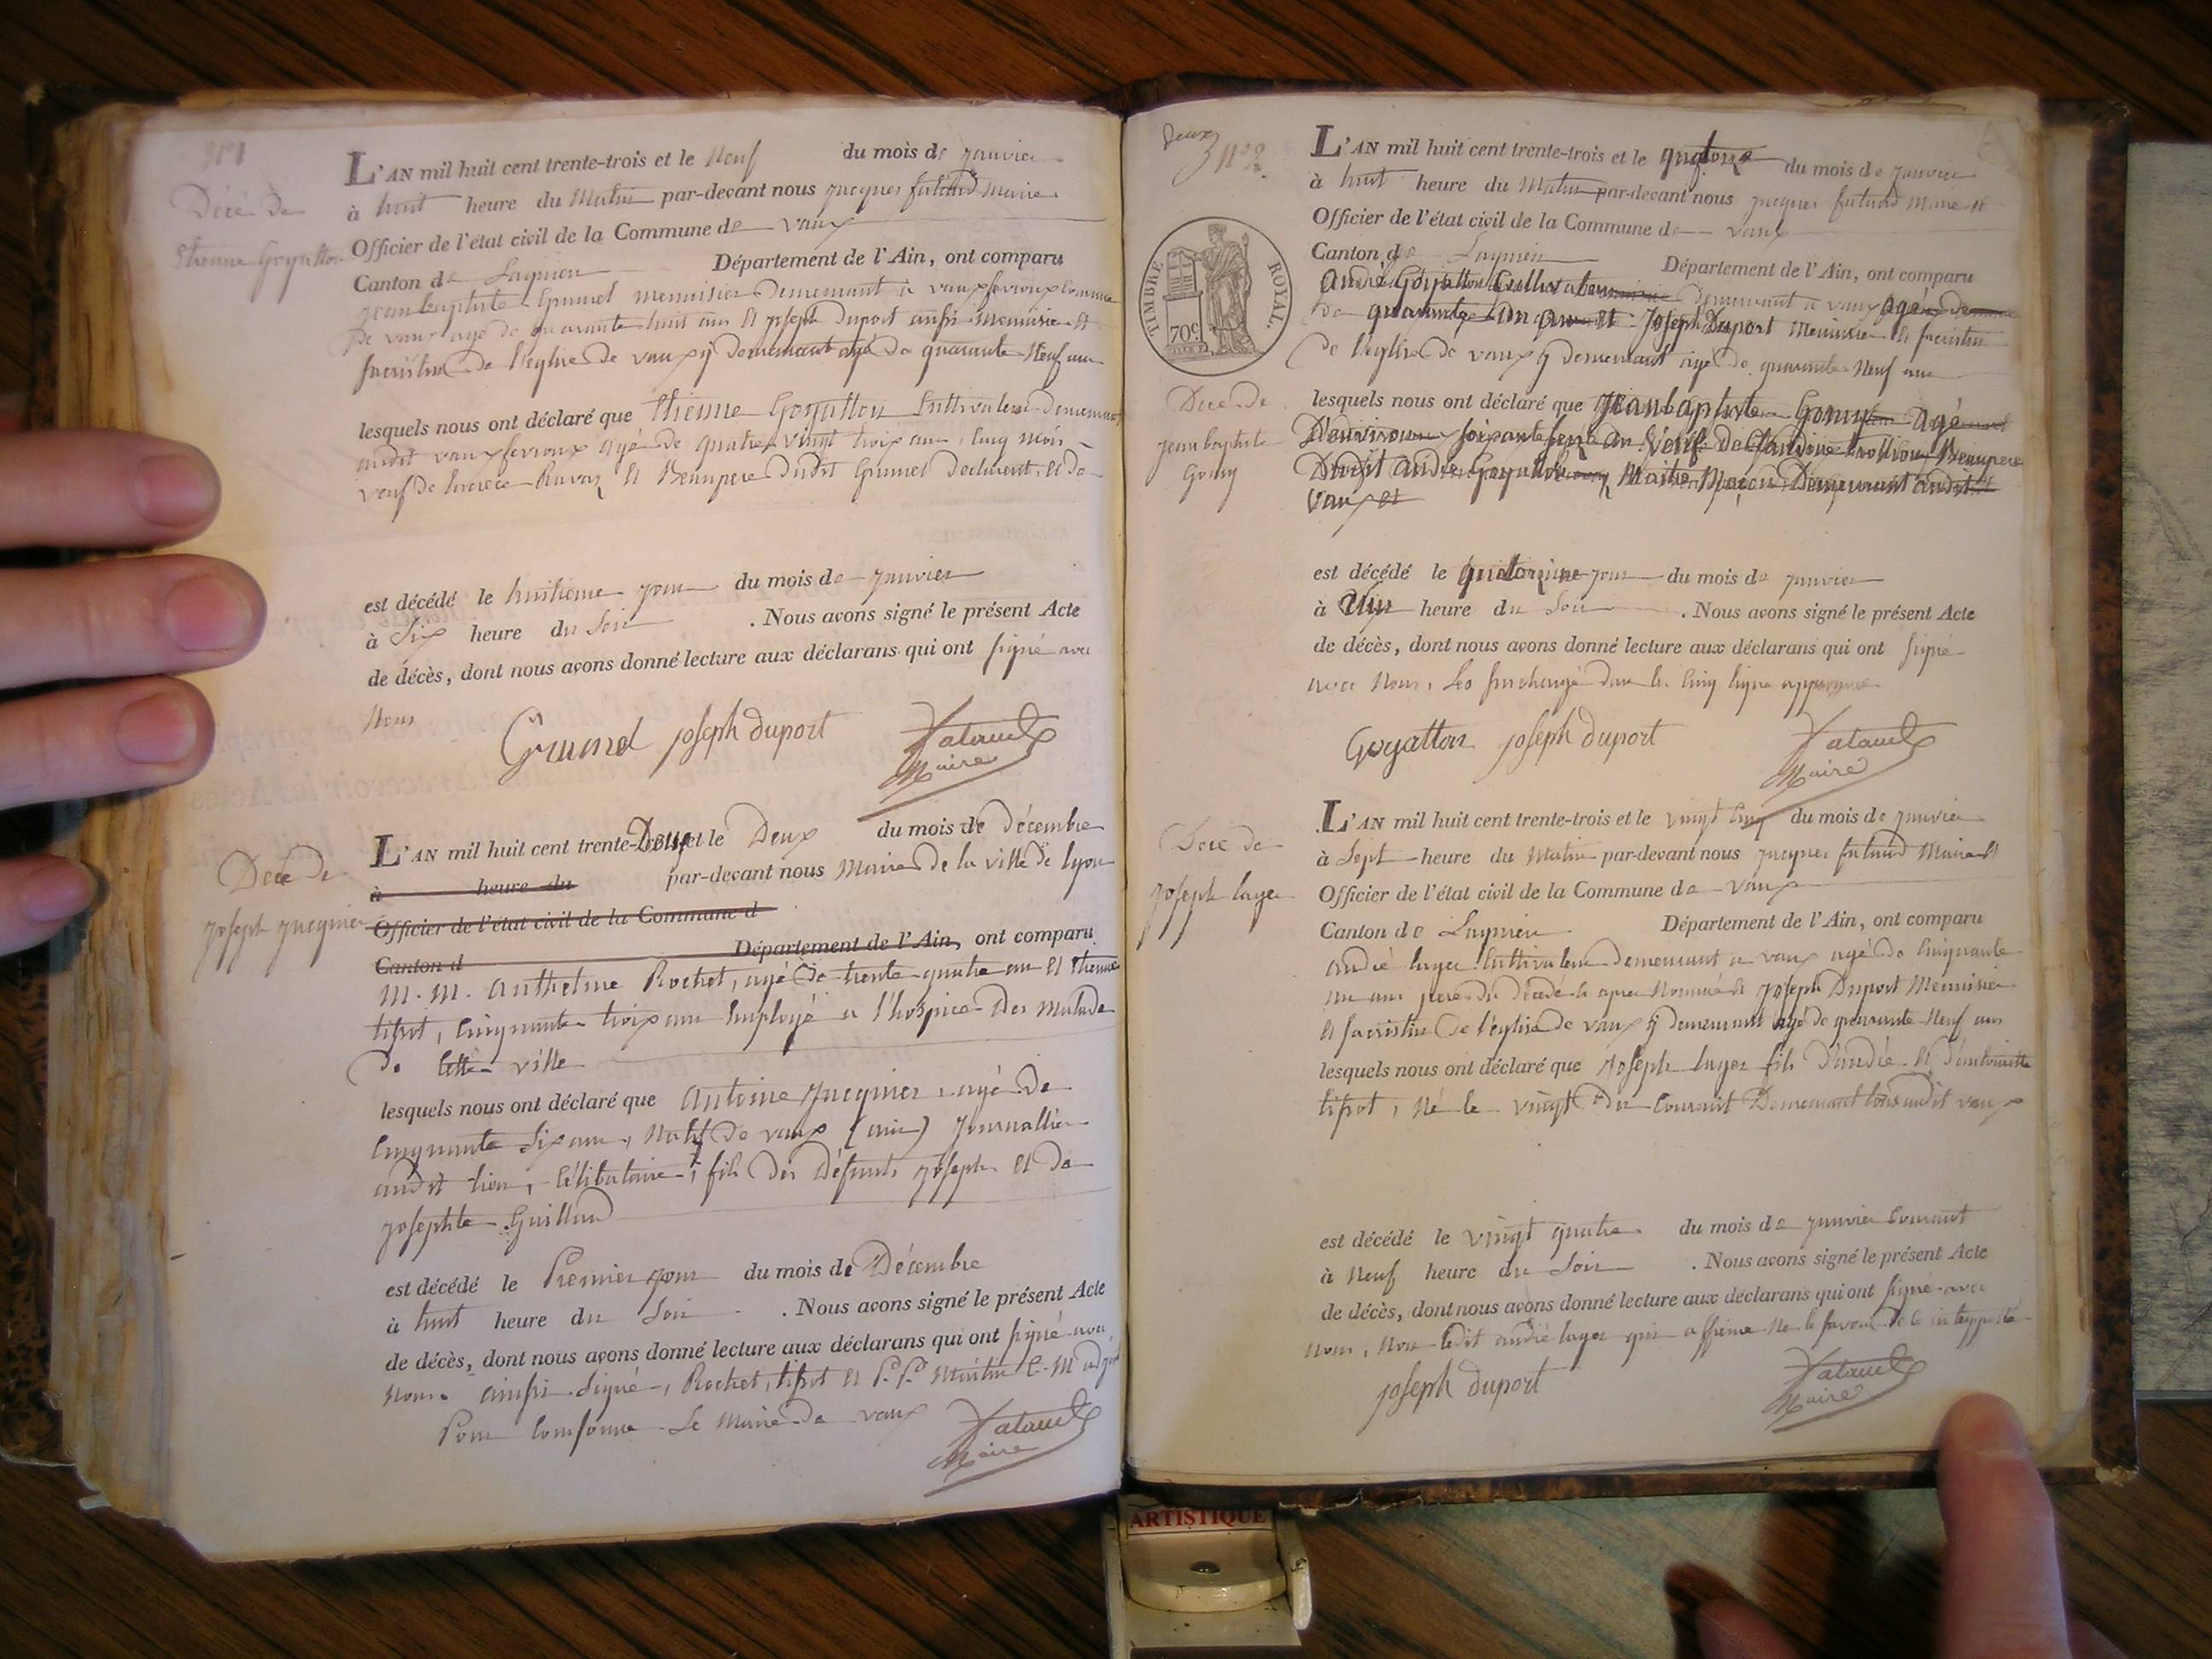 N°1
L'AN mil huit cent trente-trois et le Neuf du mois de Janvier
à huit heure du Matin par-devant nous Jacques fataud Maire
Officier de l'état civil de la Commune de Vaux
Décè de
Etienne Goyatton
Canton de Lagnieu Département de l'Ain, ont comparu
Jean baptiste Grumel menuisier Demeurant à vaux fevroux Commune
De vaux agé de quarante huit ans Et Joseph Duport aussi Menuisier Et
sacristin De l'église De vaux y Demeurant agé de quarante Neuf ans
lesquels nous ont déclaré que Etienne Goyatton Cultivateur Demeurant
audit vaux fevroux agé De quatre vingt trois ans, Cinq mois
veuf De Ravaz Et Beaupere Dudit Grumel Declarent, Et de
est décédé le huitieme jour du mois de Janvier
à Six heure du Soir . Nous avons signé le présent Acte
de décès, dont nous avons donné lecture aux déclarans qui ont signé avec
Nous
Grumel Joseph duport Fataud
Maire
L'AN mil huit cent trente-Deux et le Deux du mois de Décembre
à heure du par-devant nous Maire De la ville de lyon
Décè De
Joseph Jacquier
Officier de l'état civil de la Commune d
Canton d Département de l'Ain, ont comparu
M. M. Anthelme Rochet, agé De trente quatre ans Et Etienne
tissot, Cinquante trois ans Employé a l'hospice Des Malade
De Cette ville
lesquels nous ont déclaré que Antoine Jacquier, agé De
Cinquante Six ans, Natif De vaux (ain) Journallier
audit lieu, Célibataire, fils Des Défunts Joseph Et De
Josephte Guilland
est décédé le Premier jour du mois de Décembre
à huit heure du Soir . Nous avons signé le présent Acte
de décès, dont nous avons donné lecture aux déclarans qui ont signé avec
nous. ainsi Signé, Rochet, tissot Et P. P. Martin
Pour Conforme Le Maire De vaux Fataud
Maire
Deux
N°2
L'AN mil huit cent trente-trois et le quatorze du mois de Janvier
à huit heure du Matin par-devant nous Jacques fataud Maire Et
Officier de l'état civil de la Commune de Vaux
TIMBRE ROYAL.
70c
Canton de Lagnieu Département de l'Ain, ont comparu
André Goyatton Cultivateur Demeurant a vaux agé De
De quarante Un ans Et Joseph Duport Menuisier Et sacristin
De l'eglise De vaux y demeurant agé De quarante Neuf ans
Décè De
Jean baptiste
Gonuy
lesquels nous ont déclaré que Jean baptiste Gonuy Agé
D'environ soixante Veuf De Claudine Beaupere
Dudit André Goyatton Maitre Maçon Demeurant audit
Vaux et
est décédé le quatorzieme jour du mois de Janvier
à Une heure du Soir . Nous avons signé le présent Acte
de décès, dont nous avons donné lecture aux déclarans qui ont signé
avec Nous, Les surchargé dans les Cinq ligne approuvé
Goyatton Joseph duport Fataud
Maire
L'AN mil huit cent trente-trois et le vingt Cinq du mois de Janvier
Décè de
Joseph lager
à Sept heure du Matin par-devant nous Jacques fataud Maire Et
Officier de l'état civil de la Commune de Vaux
Canton de Lagnieu Département de l'Ain, ont comparu
André lager Cultivateur Demeurant a vaux agé De Cinquante
un ans pere Du Décédé ci apres Nommé Et Joseph Duport Menuisier
Et sacristin De l'église De vaux y demeurant agé de quarante Neuf ans
lesquels nous ont déclaré que Joseph lager fils D'andré Et D'antoinette
tissot, Né le vingt Du Courant Demeurant audit vaux
est décédé le vingt quatre du mois de Janvier Courant
à Neuf heure du Soir . Nous avons signé le présent Acte
de décès, dont nous avons donné lecture aux déclarans qui ont signé avec
nous, Non ledit andré lager qui a affirmé Ne le savoir De ce interpellé
Joseph duport Fataud
Maire
ARTISTIQUE